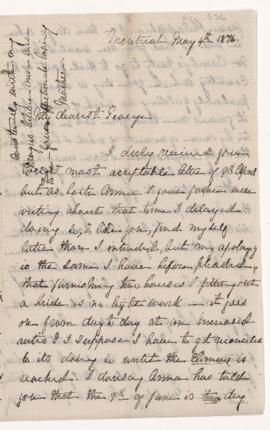 Montreal May 4th 1876.
My dearest George
I duly received your
last most acceptable letter of 9th April
but as both Anna & your father were
writing about that time I delayed
doing so, & like you, find myself
later than I intended, but my apology
is the same I have before pleaded,
that furnishing two houses & fitting out
a bride is no light work — it goes
on from day to day at an increased
ratio & I suppose I have to get reconciled
to its doing so until the climax is
reached. I daresay Anna has told
you that the 7th of June is the day
Constantly with my
dearest
your affectionate loving
Mother